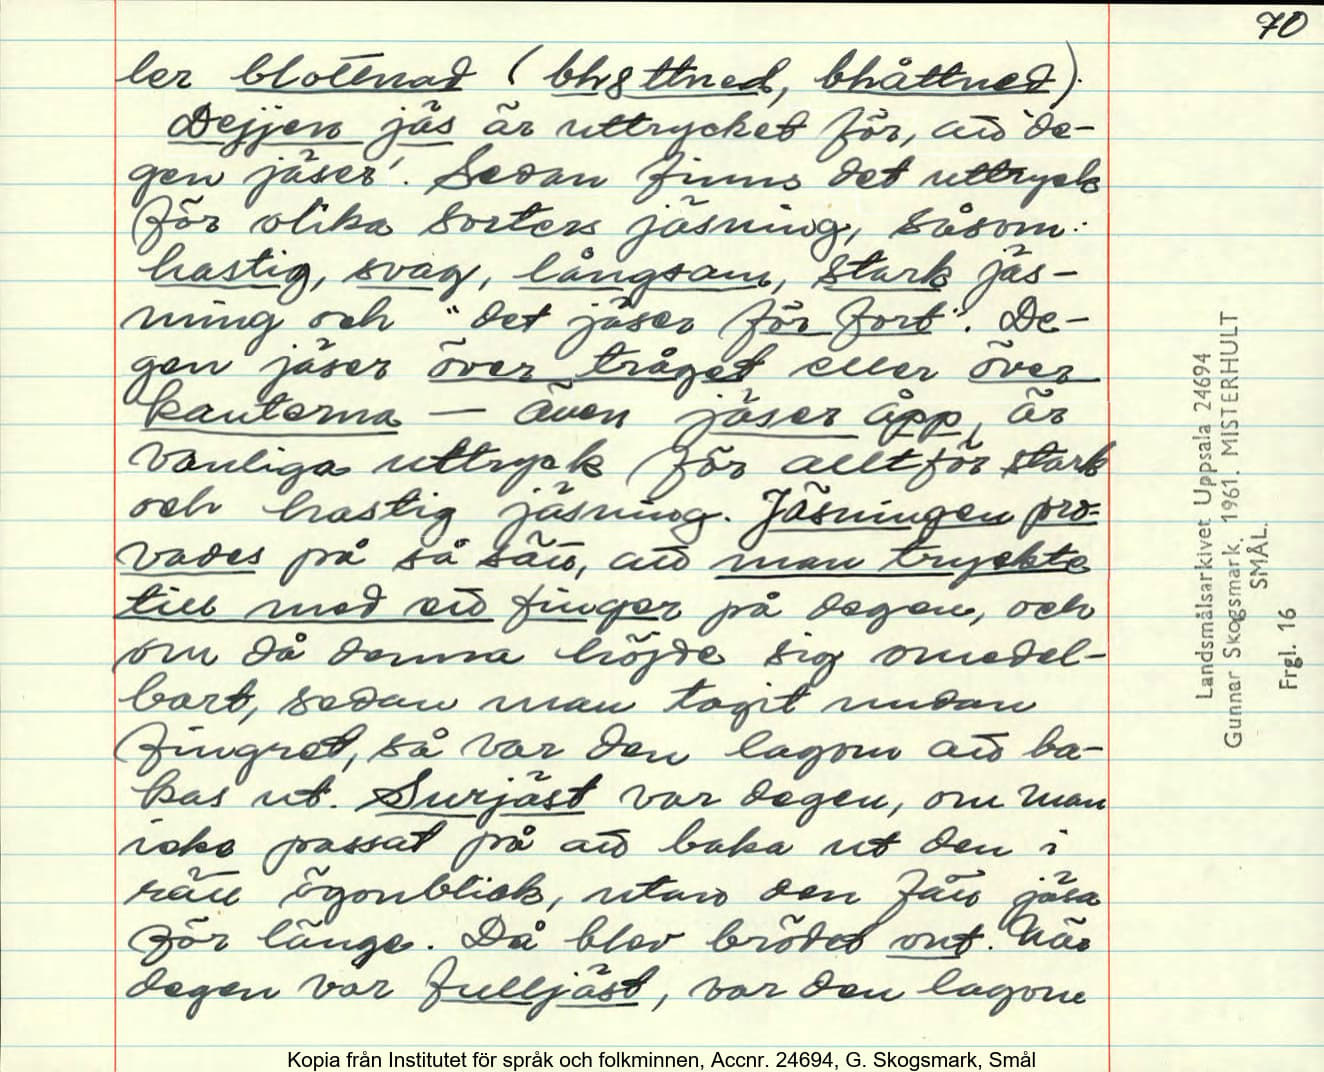 70
ler blottnad (                , bhåttned).
Dejjen jäs är uttrycket för, att 'de-
gen jäser'. Sedan finns det uttryck
för olika sorters jäsning, såsom:
hastig, svag, långsam, stark jäs-
ning och "det jäser för fort". De-
gen jäser över tråget eller över
kanterna — även jäser åpp, är
vanliga uttryck för alltför stark
och hastig jäsning. Jäsningen pro-
vades på så sätt, att man tryckte
till med ett finger på degen, och
om då denna höjde sig omedel-
bart, sedan man tagit undan
fingret, så var den lagom att ba-
kas ut. Surjäst var degen, om man
icke passat på att baka ut den i
rätt ögonblick, utan den fått jäsa
för länge. Då blev brödet ont. När
degen var fulljäst, var den lagom
Landsmålsarkivet Uppsala 24694
Gunnar Skogsmark. 1961. MISTERHULT
SMÅL.
Frgl. 16
Kopia från Institutet för språk och folkminnen, Accnr. 24694, G. Skogsmark, Smål